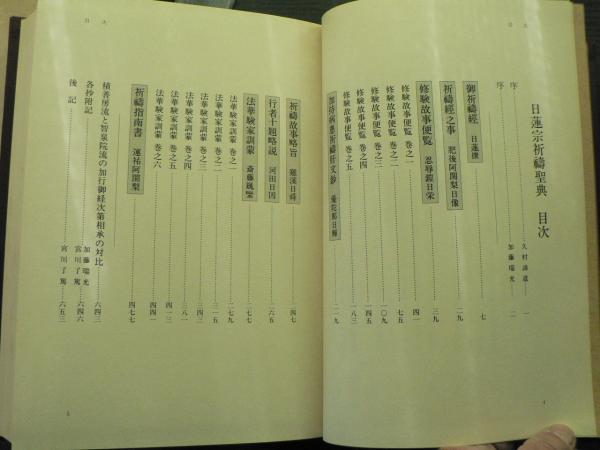 目次
日蓮宗祈禱聖典 目次
序 久村諦道 一
序 加藤瑞光 二
御祈禱經 日蓮撰 七
祈禱經之事 肥後阿闍梨日像 二九
修験故事便覧 忍辱鎧日栄 三九
修験故事便覧 巻之一 四一
修験故事便覧 巻之二 七五
修験故事便覧 巻之三 一〇九
修験故事便覧 巻之四 一四五
修験故事便覧 巻之五 一八三
加持病患祈禱肝文鈔 日輝 二一九
目次
祈禱故事略旨 難渓日舜 二四七
行者十題略説 河田日因 二六五
法華験家訓蒙 斎藤 二七七
法華験家訓蒙 巻之一 二七九
法華験家訓蒙 巻之二 三一五
法華験家訓蒙 巻之三 三四三
法華験家訓蒙 巻之四 三八一
法華験家訓蒙 巻之五 四一三
法華験家訓蒙 巻之六 四四一
祈禱指南書 運祐阿闍梨 四七七
積善房流と智泉院流の加行御経次第相承の対比 六四三
各抄附記 加藤瑞光 宮川了篤 六四六
後記 宮川了篤 六五三
4
5